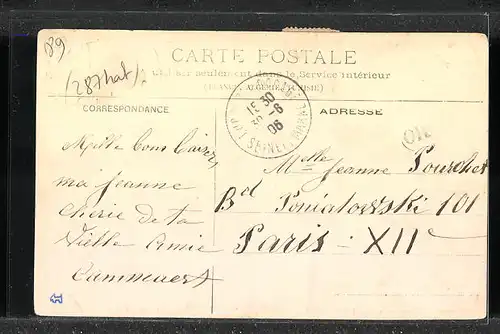 89
(287hat)
CARTE POSTALE
utiliser seulement dans le Service intérieur
(FRANCE, ALGÉRIE, TUNISIE)
CORRESPONDANCE
ADRESSE
15 30
8-6
06
OR
Mille bons baisers
ma Jeanne
cherie de ta
vielle amie
Cammaert
Melle Jeanne Pourchet
Bd Poniatowski 101
Paris - XIIe